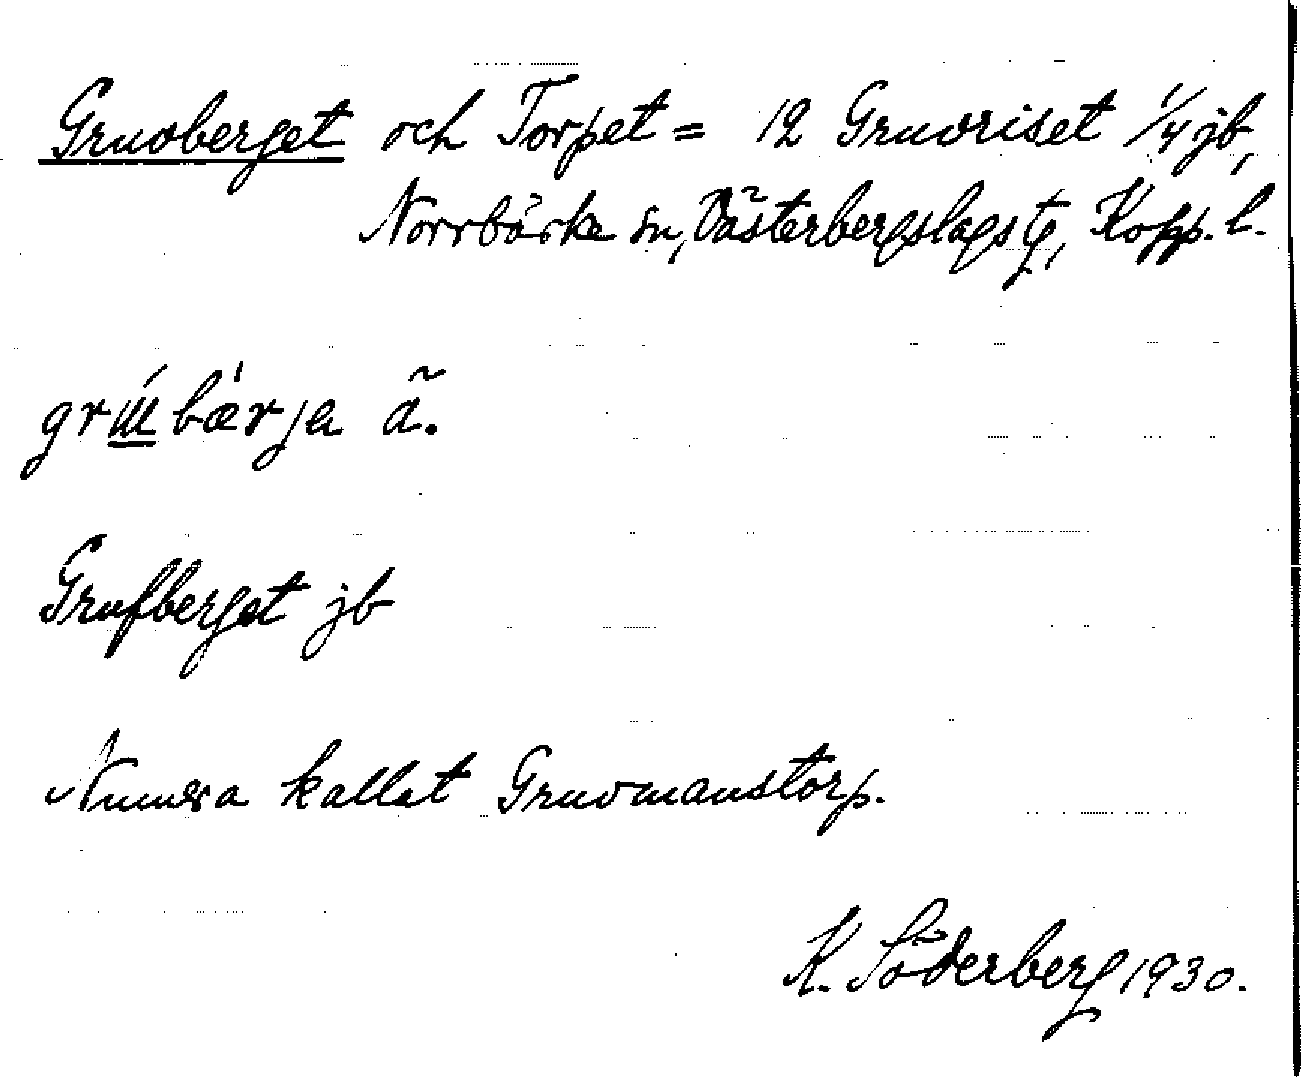 Gruvberget och Torpet = 12 Gruvriset 1/4 jb,
Norrbärke sn, Västerbergslags tg, Kopp. l.
grúbæ̀rja ã.
Grufberget jb
Numera kallat Gruvmanstorp.
K. Söderberg 1930.